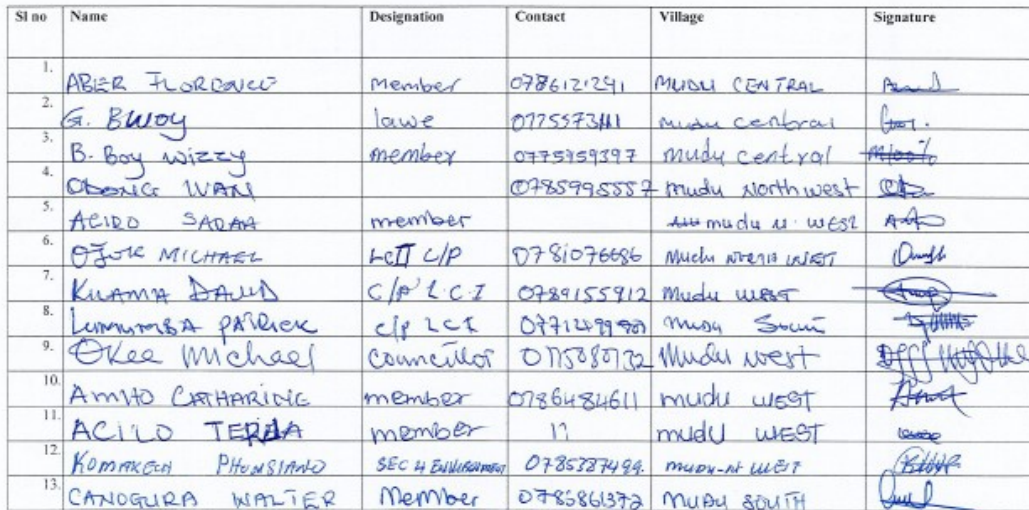 Sl no Name Designation Contact Village Signature
1. ABER FLORENCE Member 0786121241 MUDU CENTRAL
2. G. Bwoy lawe mudu central
3. B. Boy wizzy member 0775959397 mudu central
4. ODONG WAN 0785995557 mudu North west
5. ACIRO SARAH member mudu N. WEST
6. OJOK MICHAEL LCII C/P 0781076686 Mudu North WEST
7. KILAMA DAVID C/P L.C.I 0789155912 Mudu WEST
8. LUMUMBA PATRICK C/P LCI Mudu
9. Okee Michael Councillor Mudu west
10. AMITO CATHARINE member 0786484611 mudu WEST
11. ACIRO member 11 mudu WEST
12. KOMAKECH SEC 4 ENVIRONMENT 0785387499. MUDU-N WEST
13. CANOGURA WALTER Member 0785861372 MUDU SOUTH